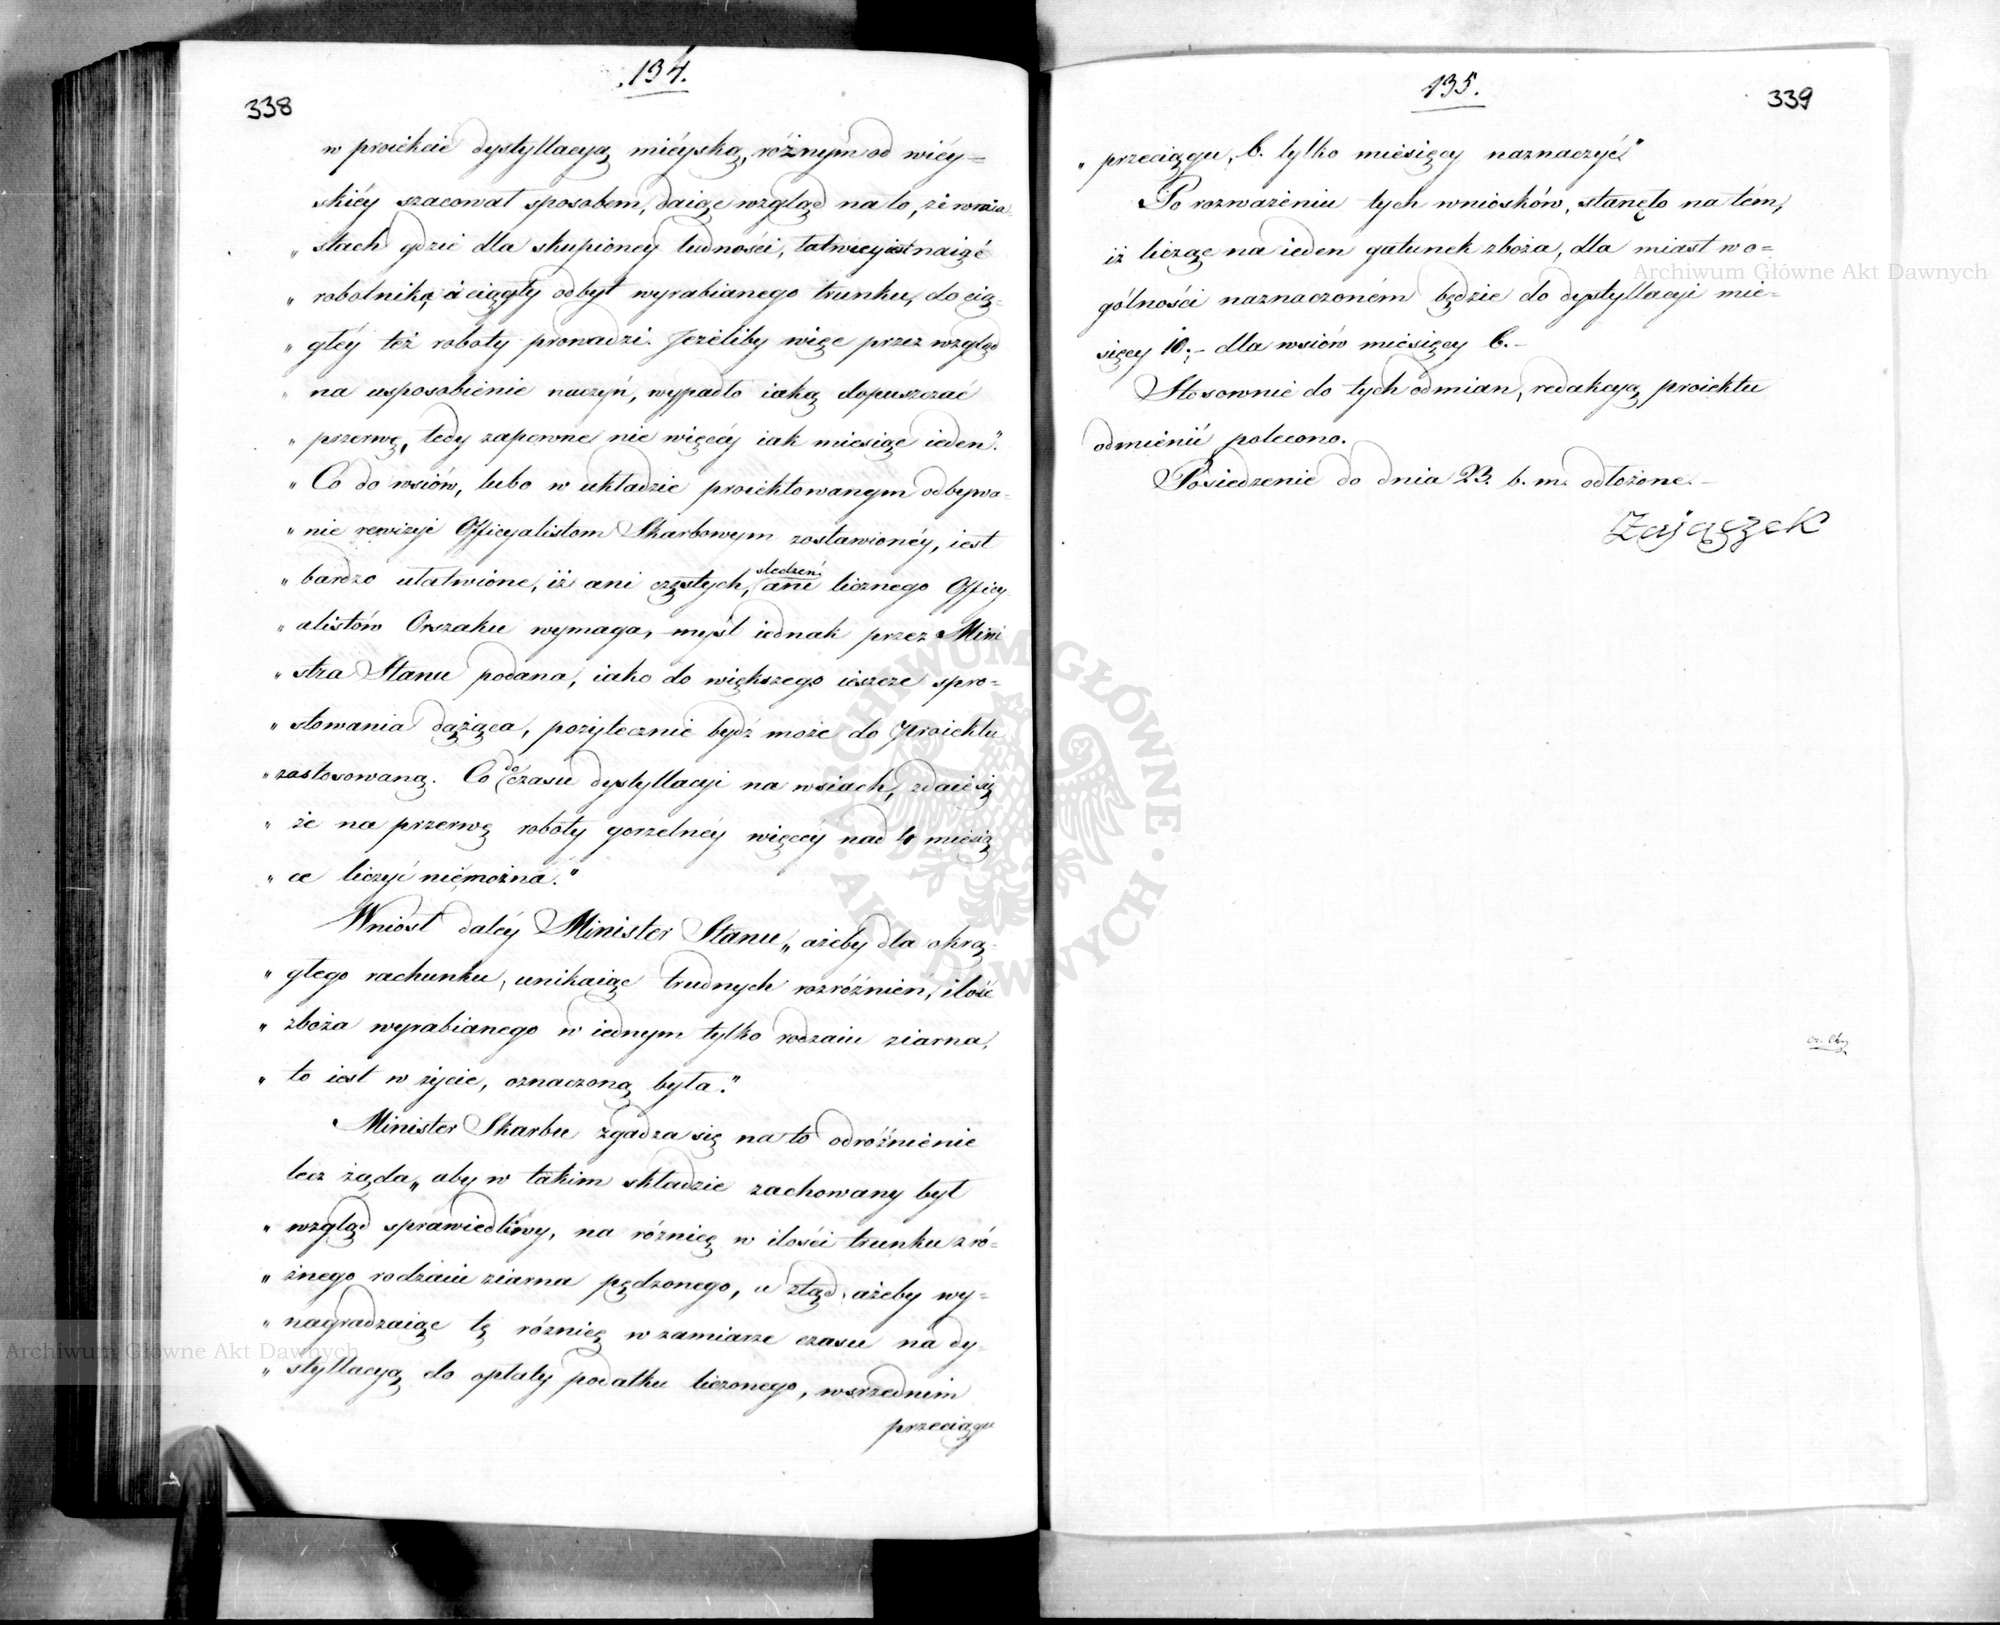 134.
338
w proiekcie dystyllacyą mieyską, różnym od wiey=
skiéy szacował sposobem, daiąc wzgląd na to, że w mia
„ stach gdzie dla skupioney ludności, łatwiey iest naiąć
„ robotnika, a ciągły odbyt wyrabianego trunku, do cią=
„ głéy téż roboty prowadzi. Jeżeliby więc przez wzgląd
„ na usposobienie naczyń, wypadło iaką dopuszczać
„ przerwę, tedy zapewne nie więcéy iak miesiąc ieden".
„ Co do wsiów, lubo w układzie proiektowanym odbywa=
„ nie rewizyi Officyalistom Skarbowym zostawionéy, iest
„ bardzo ułatwione, iż ani częstych śledzeń, ani licznego Officy
„ alistów Orszaku wymaga, myśl iednak przez Mini
„ stra Stanu podana, iako do większego ieszcze spro=
„ stowania dążąca, pożytecznie bydź może do Proiektu
„ zastosowaną. Co do czasu dystyllacyi na wsiach, zdaie się
„ że na przerwę roboty gorzelnéy więcéy nad 4 miesią
„ ce liczyć niemożna."
Wniósł daléy Minister Stanu „ ażeby dla okrą=
„ głego rachunku, unikaiąc trudnych rozróżnień, ilość
„ zboża wyrabianego w iednym tylko rodzaiu ziarna,
„ to iest w życie, oznaczoną była."
Minister Skarbu zgadza się na to odróżnienie
lecz żąda „ aby w takim składzie zachowany był
„ wzgląd sprawiedliwy, na różnicę w ilości trunku z ró=
„ żnego rodzaiu ziarna pędzonego, a ztąd, ażeby wy=
„ nagradzaiąc tę różnicę w zamiarze czasu na dy=
„ styllacyą do opłaty podatku liczonego, w srzednim
przeciągu
135.
339
„ przeciągu, 6. tylko miesięcy naznaczyć."
Po rozważeniu tych wniosków, stanęło na tém,
iż licząc na ieden gatunek zboża, dla miast w o=
gólności naznaczoném będzie do dystyllacyi mie=
sięcy 10.– dla wsiów miesięcy 6.–
Stosownie do tych odmian, redakcyą proiektu
odmienić polecono.
Posiedzenie do dnia 23. b. m. odłożone.–
Zajączek
Archiwum Główne Akt Dawnych
ARCHIWUM GŁÓWNE AKT DAWNYCH
Archiwum Główne Akt Dawnych